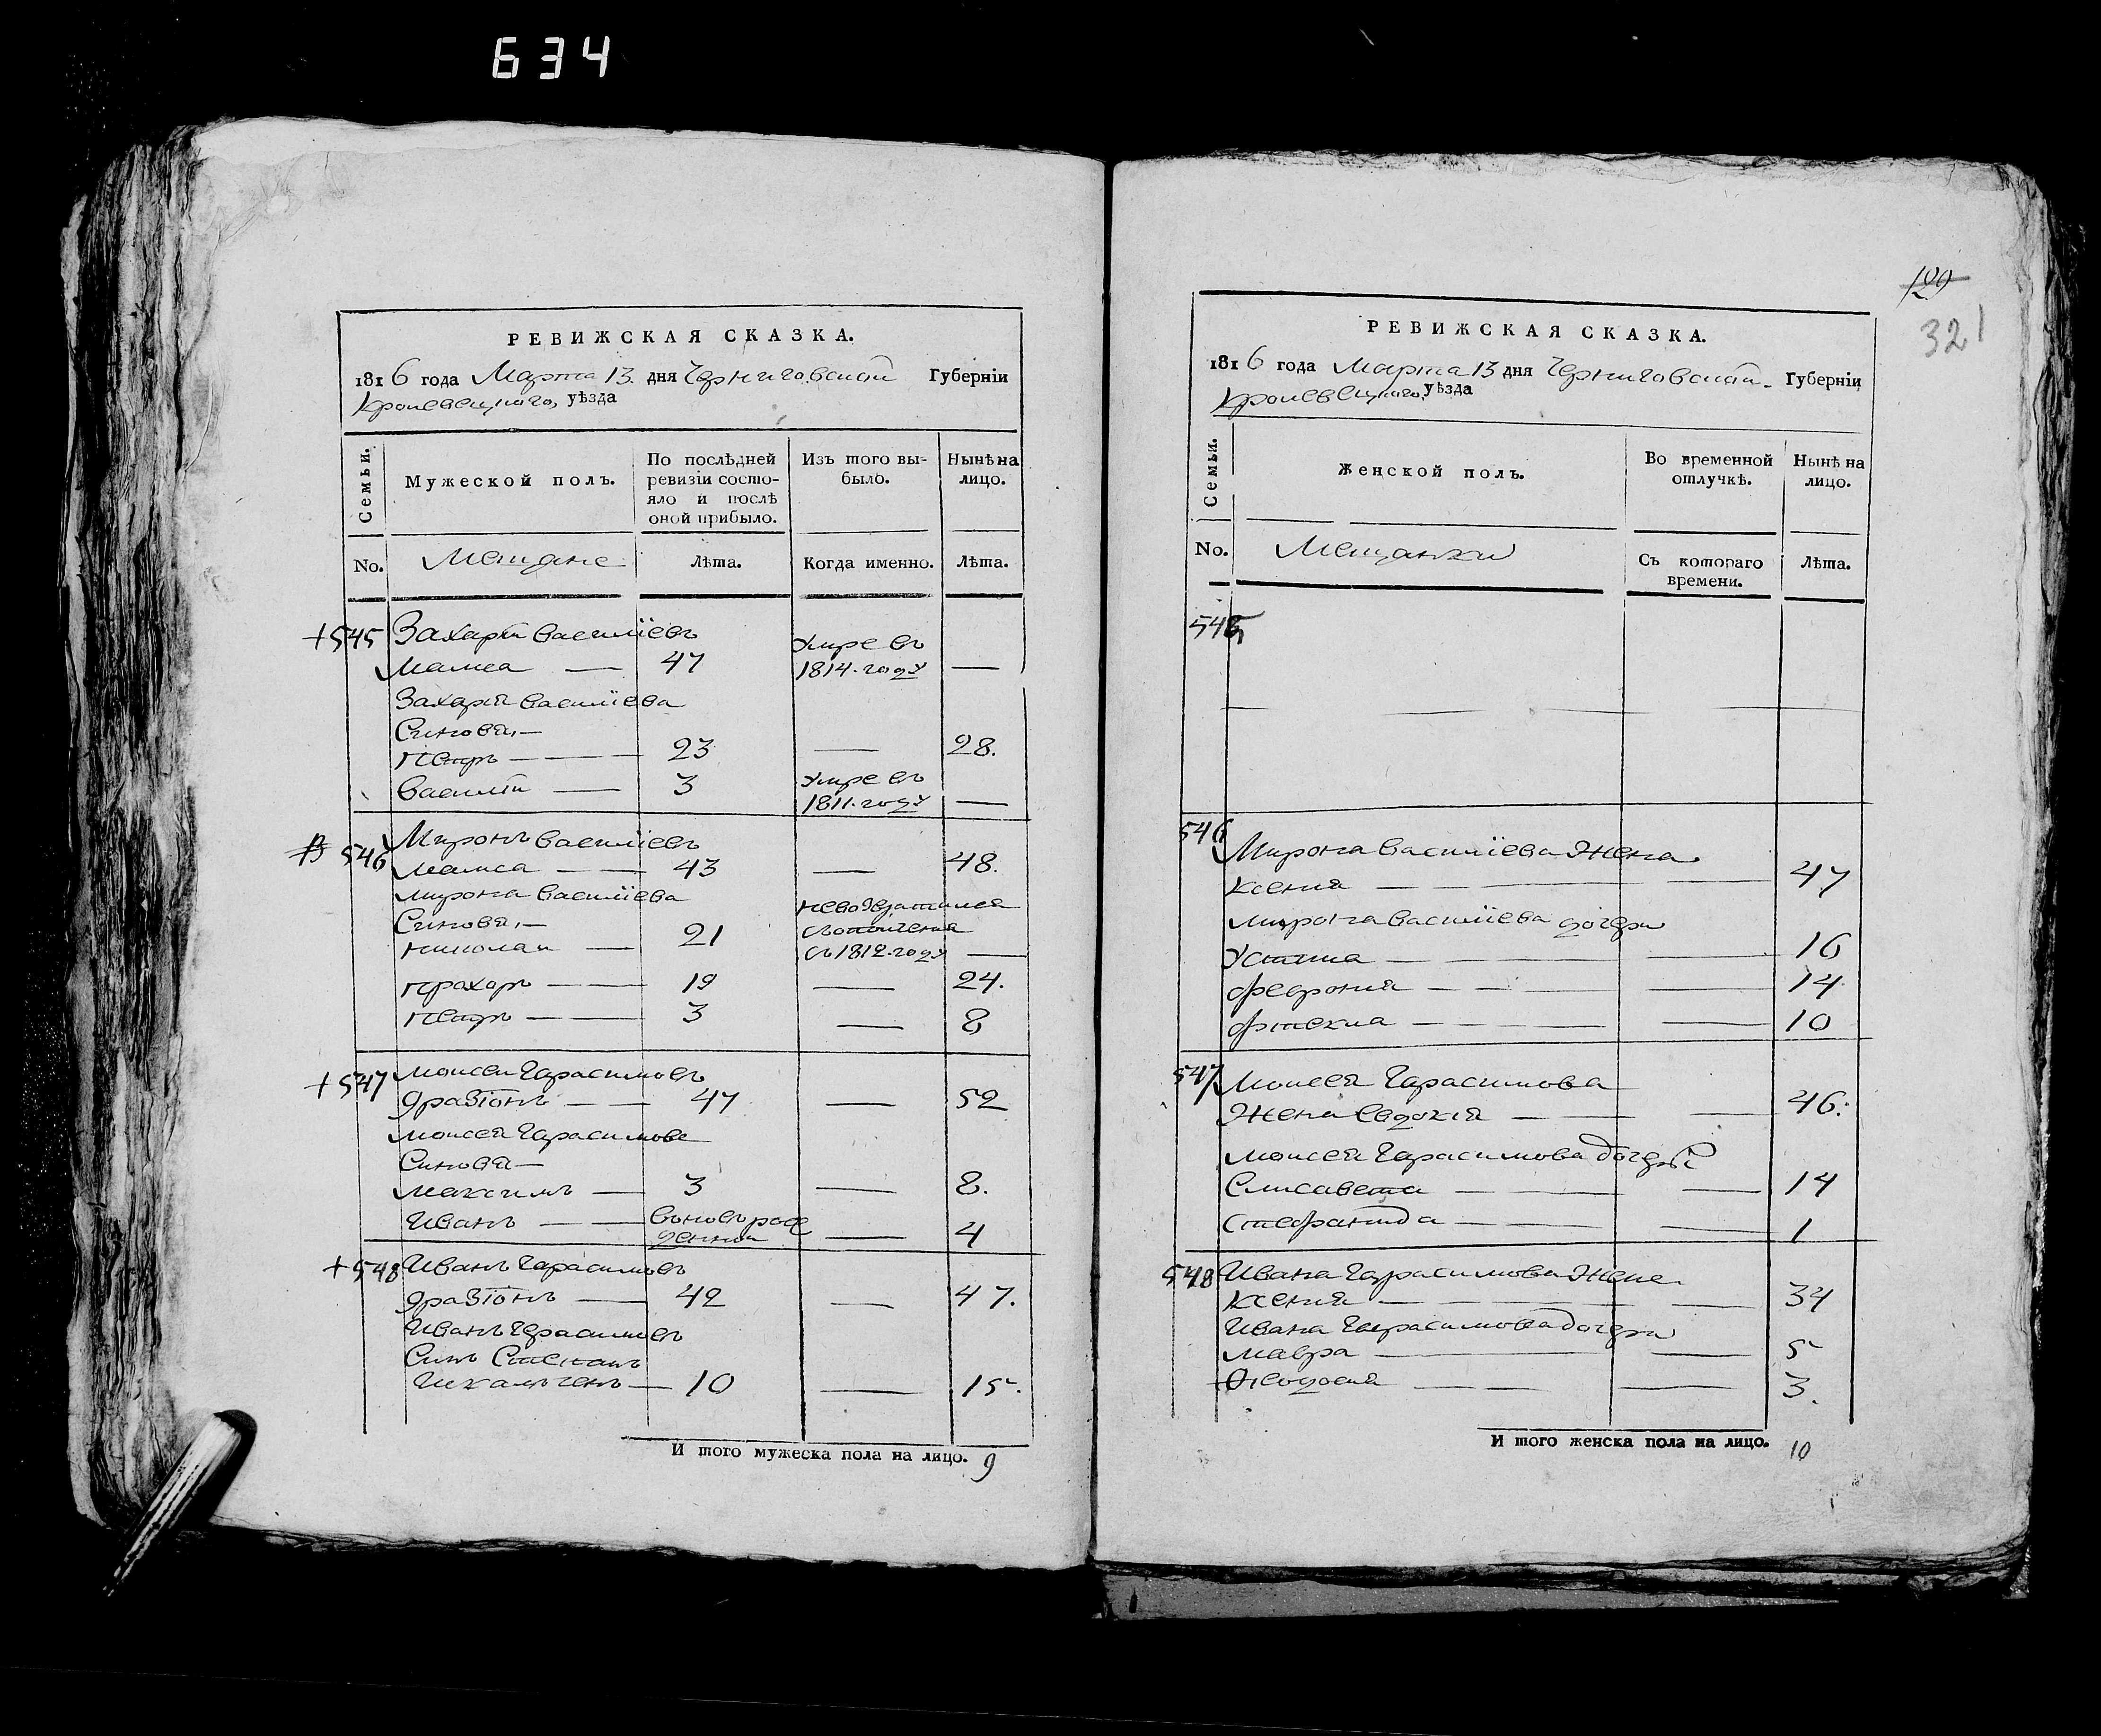 634
РЕВИЖСКАЯ СКАЗКА.
1816 года Марта 13. дня Черниговской Губернїи
Кролевецкого, уѣзда
Семьи.
Мужеской полъ.
По послѣдней ревизїи состояло и послѣ оной прибыло.
Изъ того выбыло.
Нынѣ на лицо.
No.
Мещане
Лѣта.
Когда именно.
Лѣта.
+545 Захарій Василїевъ
— 47 Умре въ 1814. году —
Захарія Василїева
Синовя, —
Петръ — — 23 — 28.
Василій — 3 Умре въ 1811. году —
546 Миронъ Василїевъ
— — 43 — 48.
Мирона Василїева
Синовя, —
Николай — 21 невозвратился съ 1812. году —
Прахоръ — — 19 — 24.
Петръ — — 3 — 8
+547 Моисей Гарасимовъ
— — 47 — 52
Моисея Гарасимова
Синовя —
Максимъ — 3 — 8.
Иванъ — — вновь рожденний — 4
+548 Иванъ Гарасимовъ
— 42 — 47.
Иванъ Герасимовъ
Синъ Степанъ
— 10 — 15.
И того мужеска пола на лицо. 9
129
321
РЕВИЖСКАЯ СКАЗКА.
1816 года Марта 13 дня Черниговской Губернїи
Кролевецкого, уѣзда
Семьи.
Женской полъ.
Во временной отлучкѣ.
Нынѣ на лицо.
No.
Мещанки
Съ котораго времени.
Лѣта.
545
546 Мирона Василїева Жена
Ксения — — — 47
Мирона Василїева дочери
Устина — — — 16
Феврония — — — 14
— — — 10
547 Моисея Гарасимова
Жена Евдокія — — 46.
Моисея Гарасимова дочери
Елисавета — — — 14
Стефанида — — — 1
548 Ивана Гарасимова Жена
Ксения — — — 34
Ивана Гарасимова дочери
Мавра — — 5
Ѳеодосия — — — 3.
И того женска пола на лицо. 10